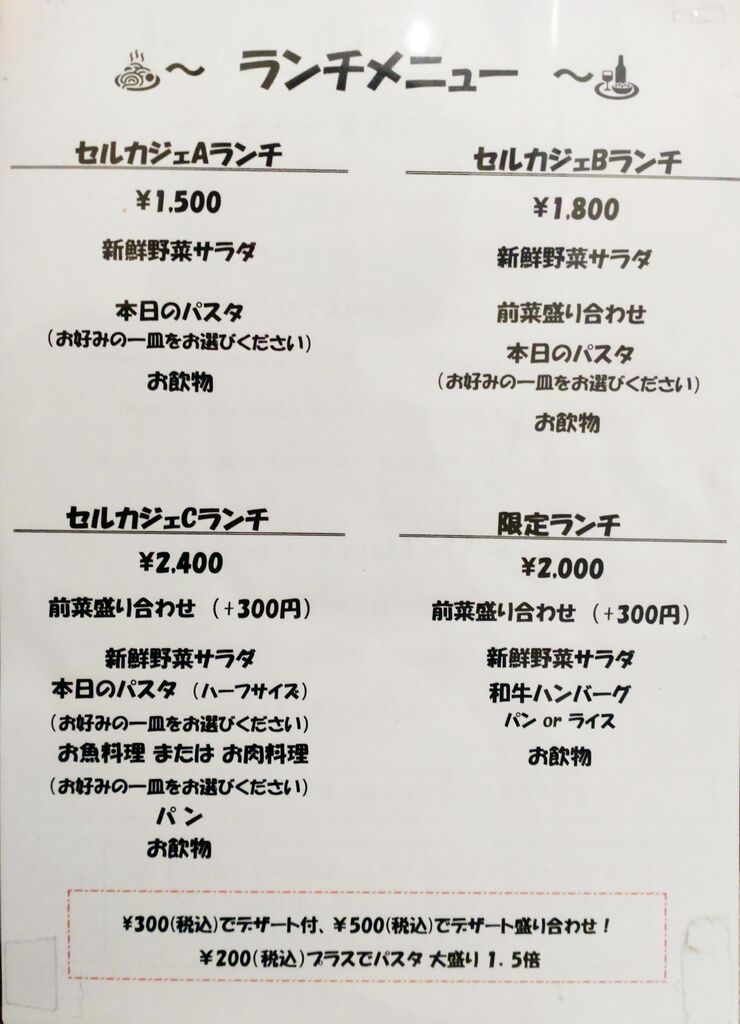 〜 ランチメニュー 〜
セルカジェAランチ
¥1,500
新鮮野菜サラダ
本日のパスタ
(お好みの一皿をお選びください)
お飲物
セルカジェBランチ
¥1,800
新鮮野菜サラダ
前菜盛り合わせ
本日のパスタ
(お好みの一皿をお選びください)
お飲物
セルカジェCランチ
¥2,400
前菜盛り合わせ (+300円)
新鮮野菜サラダ
本日のパスタ (ハーフサイズ)
(お好みの一皿をお選びください)
お魚料理 または お肉料理
(お好みの一皿をお選びください)
パン
お飲物
限定ランチ
¥2,000
前菜盛り合わせ (+300円)
新鮮野菜サラダ
和牛ハンバーグ
パン or ライス
お飲物
¥300(税込)でデザート付、¥500(税込)でデザート盛り合わせ!
¥200(税込)プラスでパスタ 大盛り 1.5倍